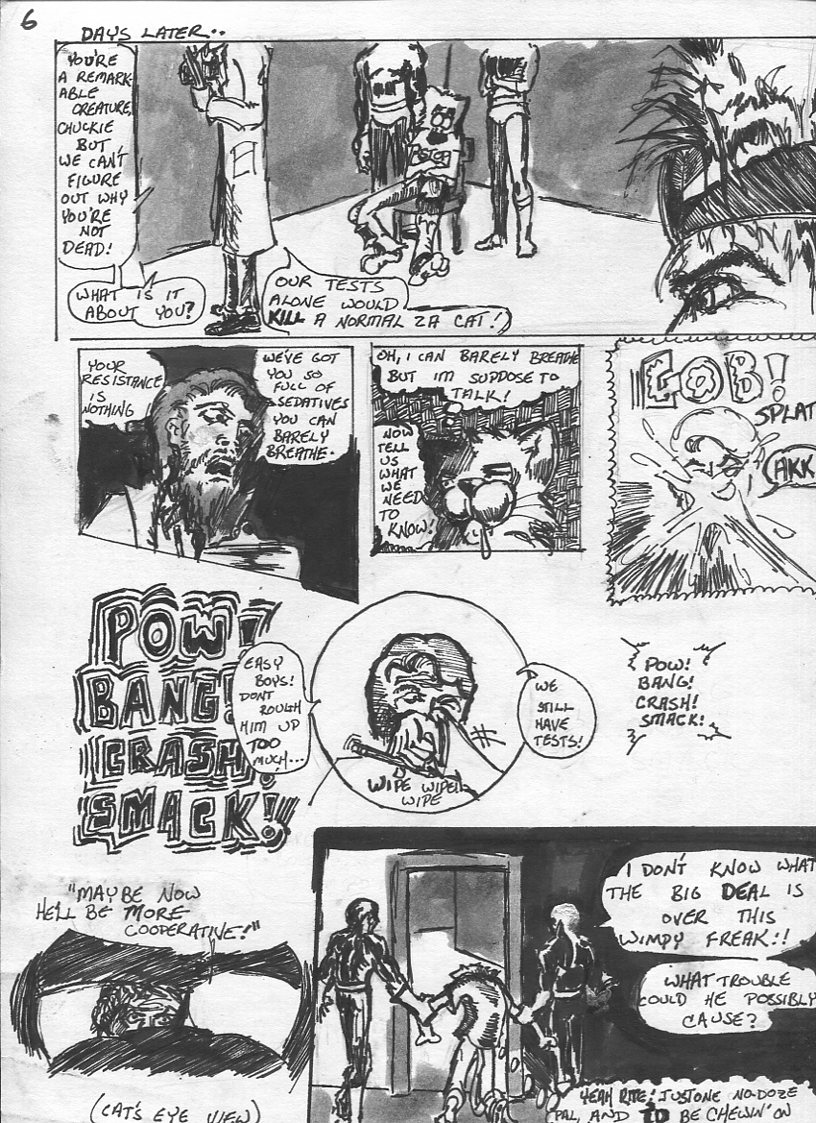 6
DAYS LATER..
YOU'RE
A REMARK-
ABLE
CREATURE,
CHUCKIE
BUT
WE CAN'T
FIGURE
OUT WHY
YOU'RE
NOT
DEAD!
WHAT IS IT
ABOUT YOU?
OUR TESTS
ALONE WOULD
KILL A NORMAL ZA CAT!
YOUR
RESISTANCE
IS
NOTHING
WE'VE GOT
YOU SO
FULL OF
SEDATIVES
YOU CAN
BARELY
BREATHE.
OH, I CAN BARELY BREATHE
BUT IM SUPPOSE TO
TALK!
NOW
TELL
US
WHAT
WE
NEED
TO
KNOW!
GOB!
SPLAT
AKK
POW!
BANG!
CRASH!
SMACK!
EASY
BOYS!
DONT
ROUGH
HIM UP
TOO
MUCH...
WE
STILL
HAVE
TESTS!
WIPE WIPE
WIPE
POW!
BANG!
CRASH!
SMACK!
"MAYBE NOW
HE'LL BE MORE
COOPERATIVE!"
(CAT'S EYE VIEW)
I DON'T KNOW WHAT
THE BIG DEAL IS
OVER THIS
WIMPY FREAK!!
WHAT TROUBLE
COULD HE POSSIBLY
CAUSE?
YEAH RITE! JUST ONE NO-DOZE
PAL, AND ID BE CHEWIN' ON